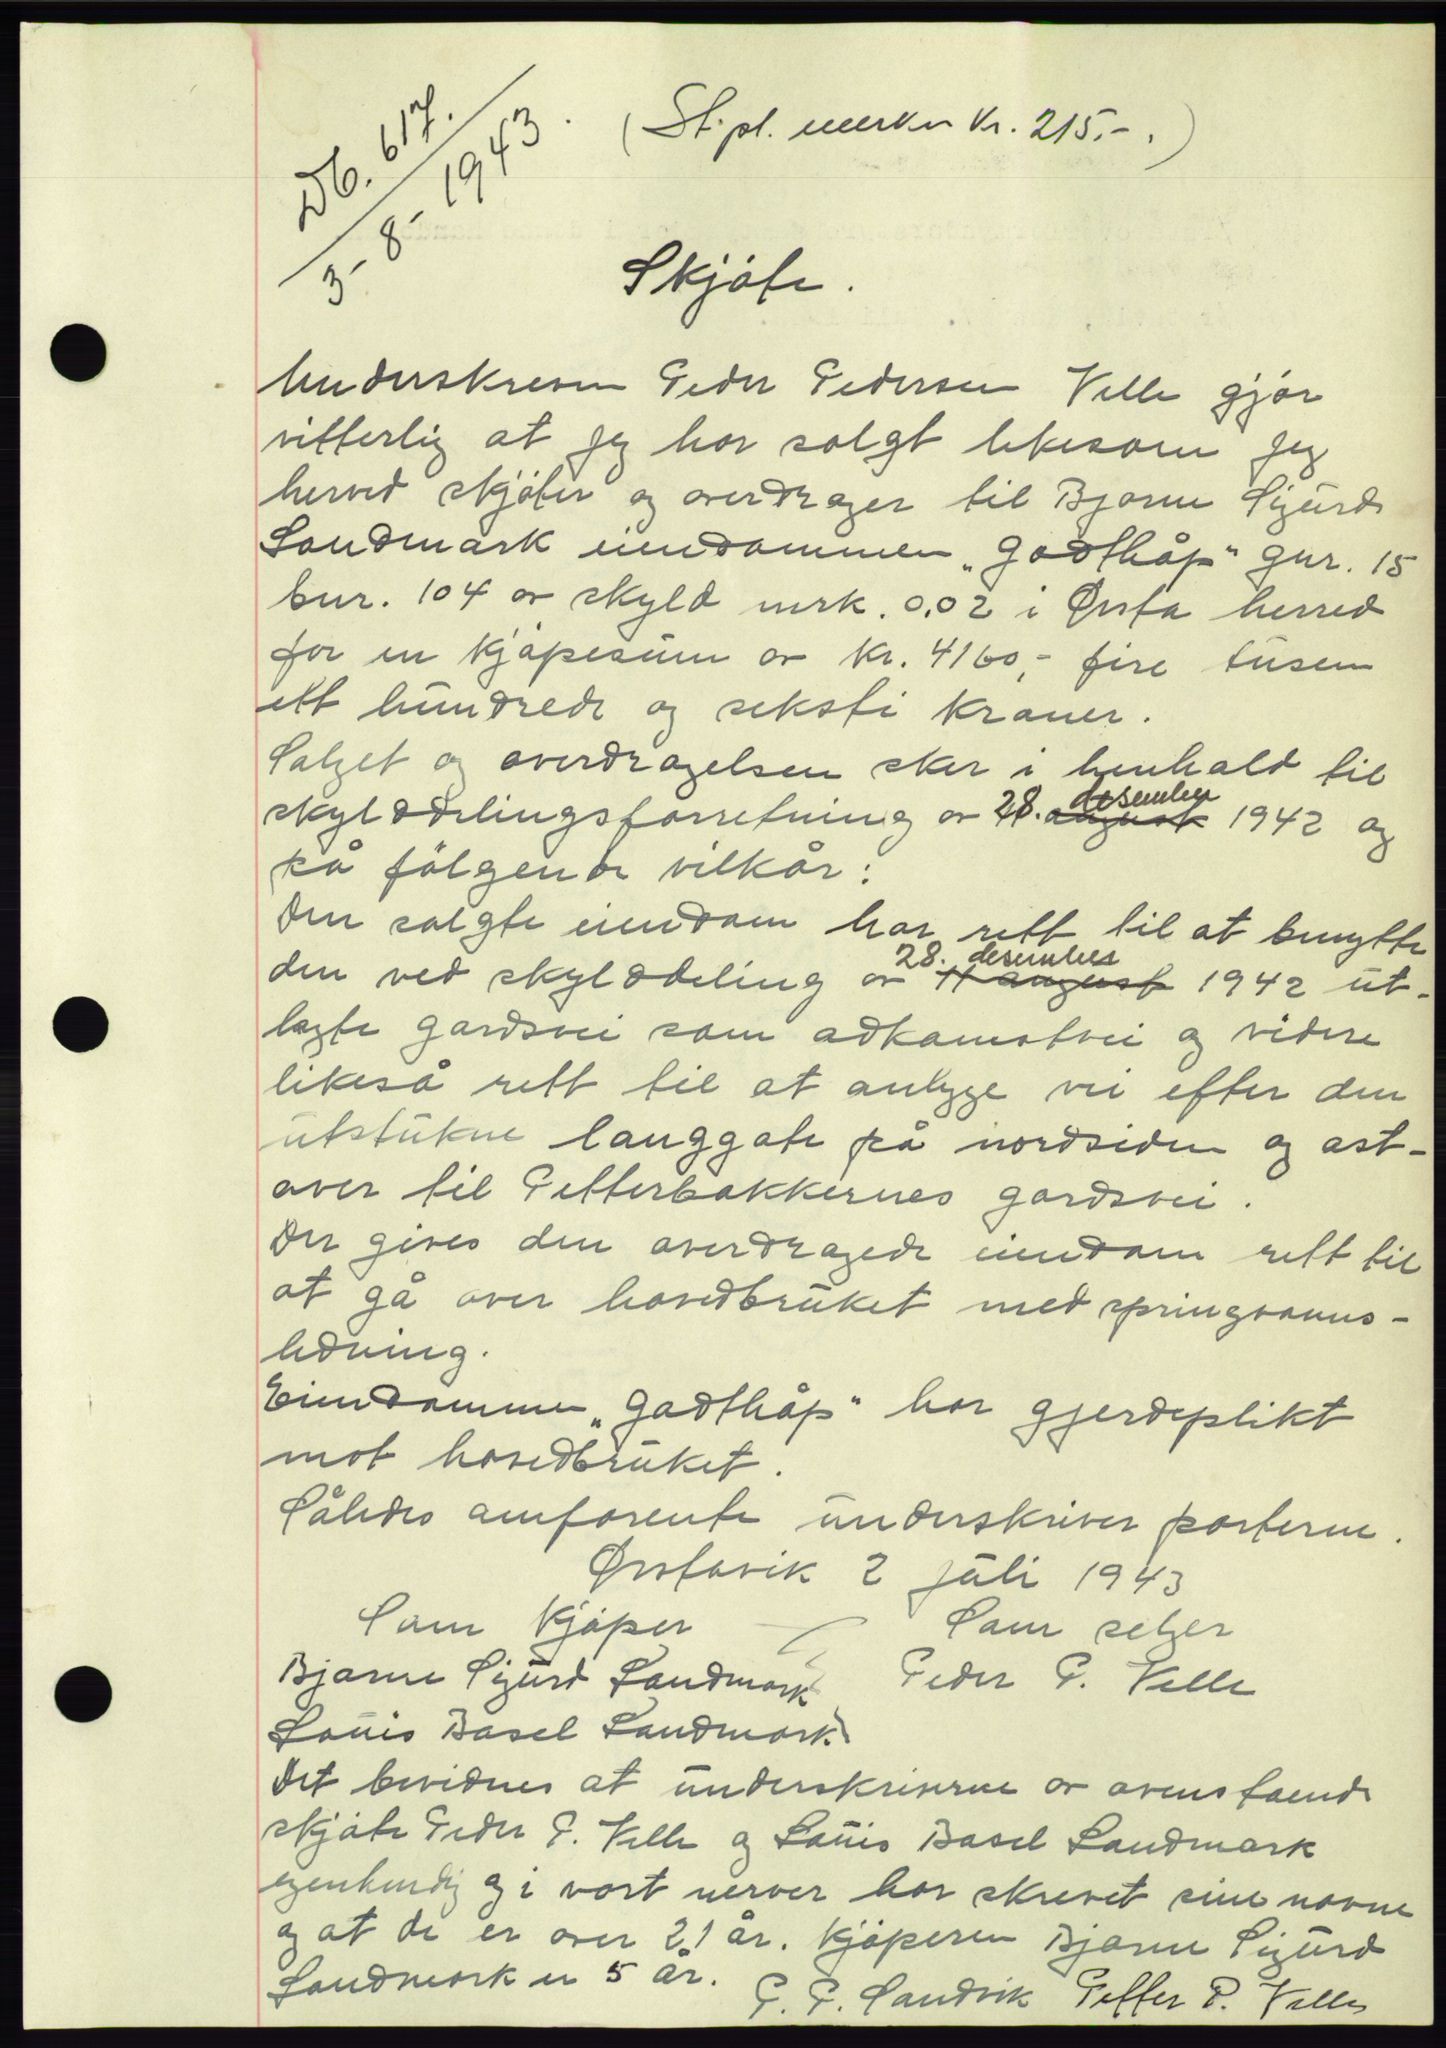 Db. 617.
3-8-1943.
(St.pl. merker kr. 215.-.)
Skjøte.
Underskreven Peder Pedersen Velle gjør
vitterlig at jeg har solgt likesom jeg
herved skjøter og overdrager til Bjarne Sigurd
Landmark eiendommen „Godthåp" gnr. 15
bnr. 104 av skyld mrk. 0.02 i Ørsta herred
for en kjøpesum av kr. 4160,- fire tusen
ett hundrede og seksti kroner.
Salget og overdragelsen sker i henhold til
skylddelingsforretning av 28. desember 1942 og
på følgende vilkår:
Den solgte eiendom har rett til at benytte
den ved skylddeling av 28. desember 1942 ut-
lagte gardsvei som adkomstvei og videre
likeså rett til at anlegge vei efter den
utstukne langgate på nordsiden og øst-
over til Petterbakkernes gardsvei.
Der gives den overdragede eiendom rett til
at gå over hovedbruket med springvanns-
ledning.
Eiendommen „Godthåp" har gjerdeplikt
mot hovedbruket.
Således omforente underskriver parterne.
Ørstavik 2 juli 1943
Som kjøper Som selger
Bjarne Sigurd Landmark Peder P. Velle
Louis Basel Landmark
Det bevidnes at underskriverne av ovenstaende
skjøte Peder P. Velle og Louis Basel Landmark
egenhendig og i vort nerver har skrevet sine navne
og at de er over 21 år. Kjøperen Bjarne Sigurd
Landmark er 5 år. P. P. Sandvik Petter P. Velle